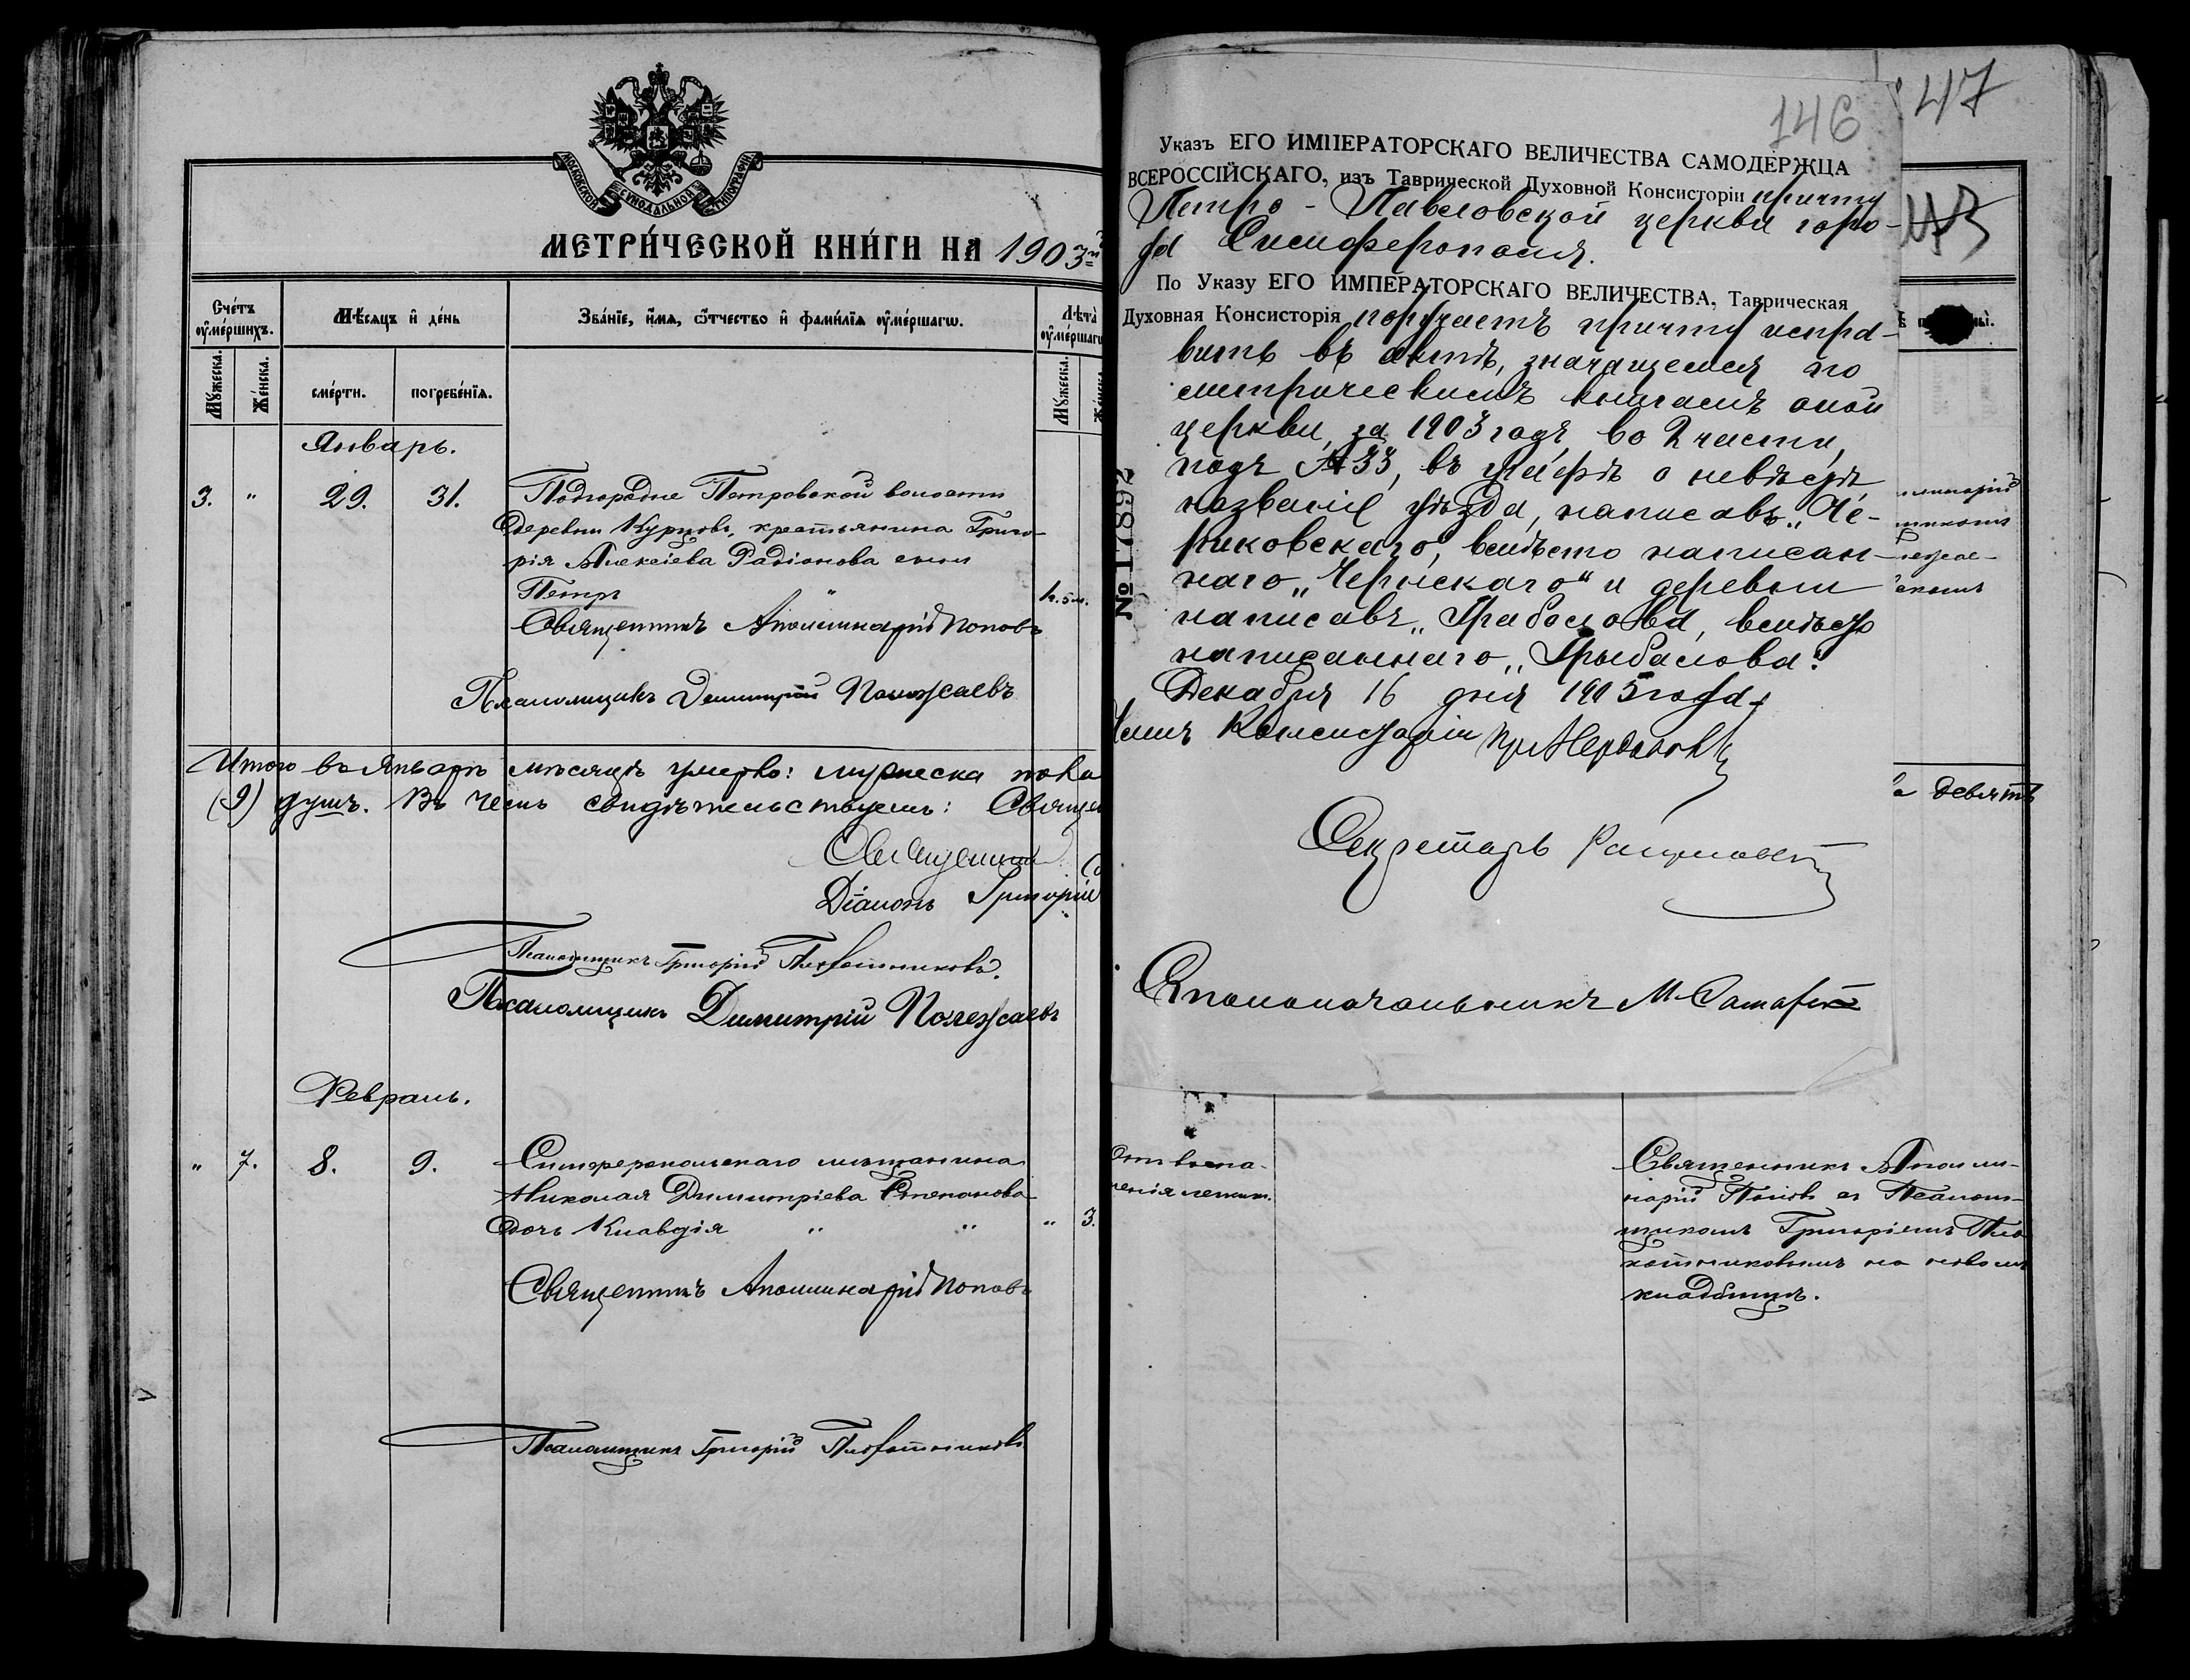 МОСКОВСКОЙ СѴНОДАЛЬНОЙ ТИПОГРАФІИ
МЕТРИ́ЧЕСКОЙ КНИ́ГИ НА 1903
Сче́тъ
оу҆ме́ршихъ.
Мѣ́сяцъ и҆ де́нь
Зва́нїе, и҆́мя, ѻ҆́тчество и҆ фами́лїя оу҆ме́ршагѡ.
Лѣ́та
оу҆ме́ршагѡ
Мꙋ́жеска.
Же́нска.
сме́рти.
погребе́нїѧ.
Мꙋ́жеска.
Январь.
3. " 29. 31. Подгородне Петровской волости
деревни Курповъ, крестьянина Григо-
рія Алексіева Радіонова сынъ
Петръ " 4. 5 м.
Священникъ Аполлинарій Поповъ
Псаломщикъ Димитрій Полежаевъ
Итого въ Январѣ мѣсяцѣ умерло: мужеска пола
(9) душъ. Въ чемъ свидѣтельствуемъ: Священ
Священникъ
Діаконъ Григорій
Псаломщикъ Григорій Плохотниковъ.
Псаломщикъ Димитрій Полежаевъ
Февраль.
" 7. 8. 9. Симферопольскаго мѣщанина
Николая Димитріева Степанова
дочь Клавдія " " " 3.
Священникъ Аполлинарій Поповъ
Псаломщикъ Григорій Плохотниковъ
146
47
Указъ ЕГО ИМПЕРАТОРСКАГО ВЕЛИЧЕСТВА САМОДЕРЖЦА
ВСЕРОССІЙСКАГО, изъ Таврической Духовной Консисторіи причту
Петро-Павловской церкви горо-
да Симферополя.
По Указу ЕГО ИМПЕРАТОРСКАГО ВЕЛИЧЕСТВА, Таврическая
Духовная Консисторія поручаетъ причту испра-
вить въ актѣ, значущемся по
метрическимъ книгамъ оной
церкви, за 1903 годъ, во 2 части,
подъ № 33, въ графѣ о невѣстѣ,
названіе уѣзда, написавъ „Че-
риковскаго", вмѣсто написан-
наго „Чернскаго" и деревни
написавъ „Грабалова", вмѣсто
написаннаго „Грыбалова".
Декабря 16 дня 1905 года.
№ 17892
Членъ Консисторіи
Секретарь
Столоначальникъ М
девять
Священникъ Аполли-
нарій Поповъ съ Псалом-
щикомъ Григоріемъ Пло-
хотниковымъ на новомъ
кладбищѣ.